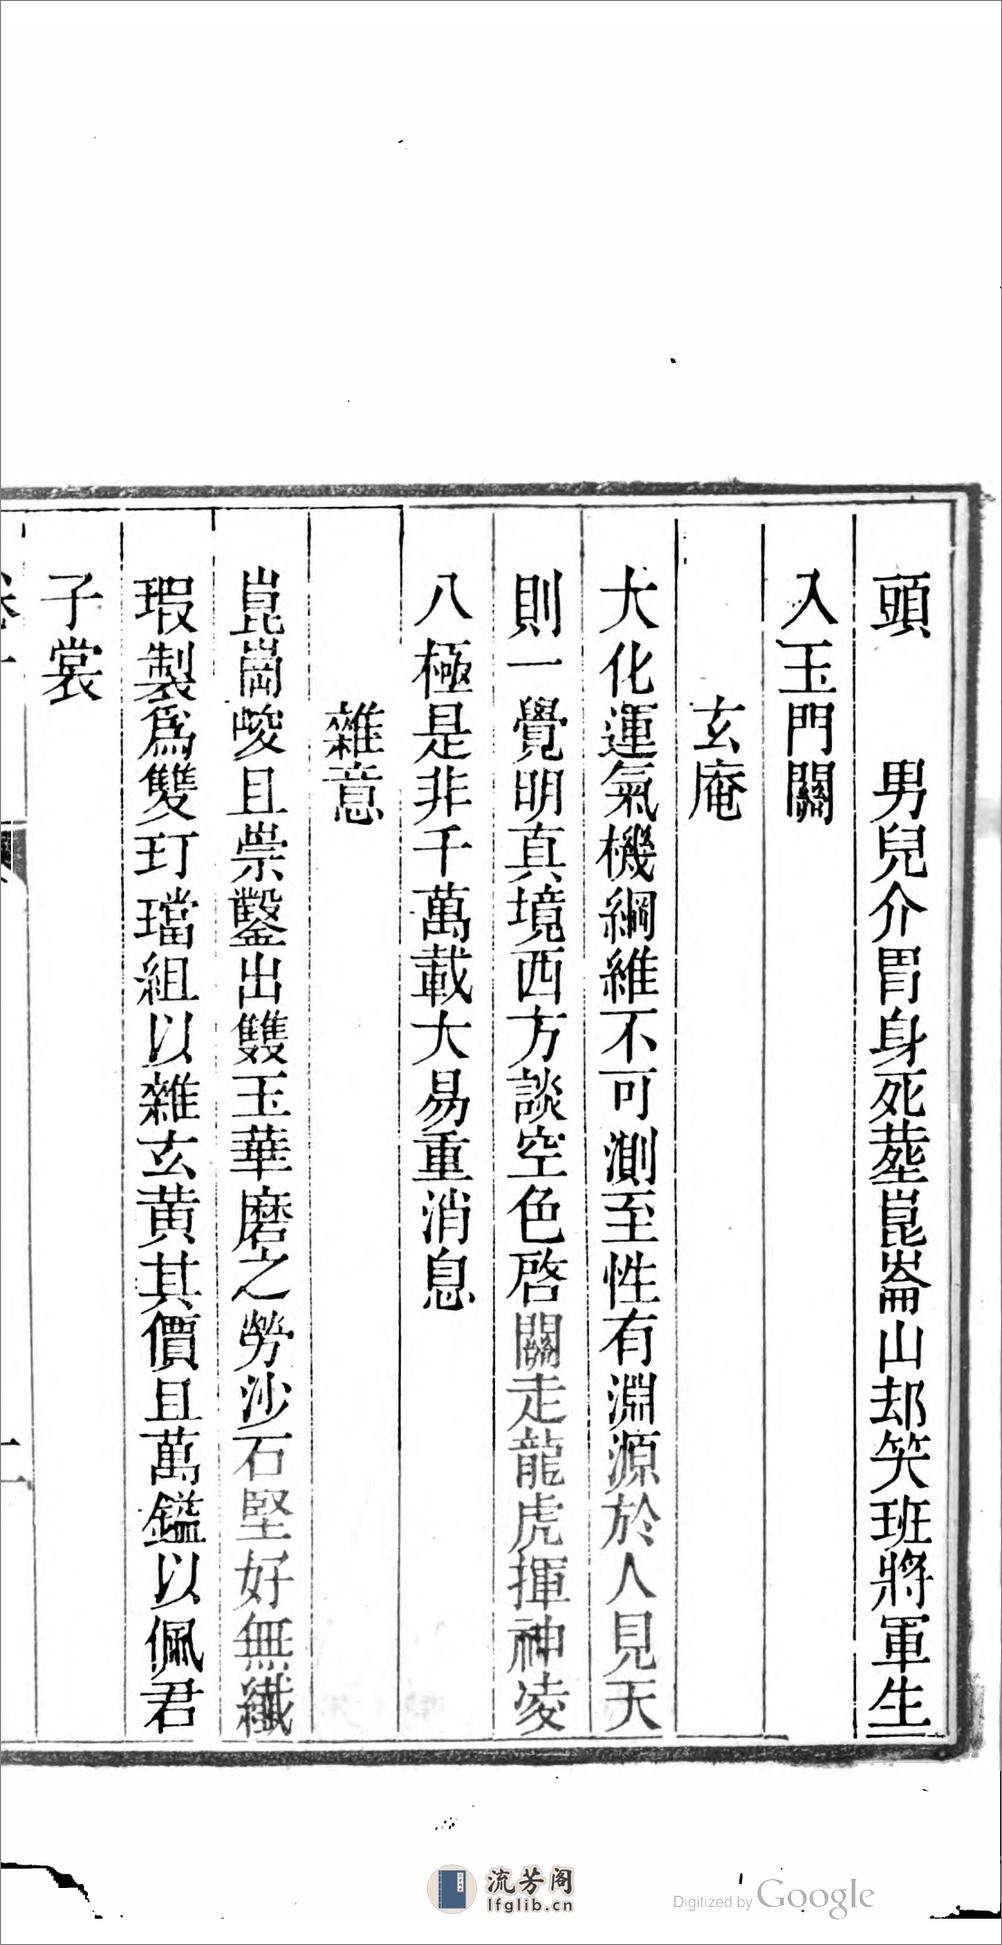 頭　　男兒介冑身死塟崑崙山却笑班將軍生
入玉門關
玄庵
大化運氣機綱維不可測至性有淵源於人見天
則一覺明真境西方談空色啓關走龍虎揮神凌
八極是非千萬載大易重消息
雜意
崑崗峻且崇鑿出雙玉華磨之勞沙石堅好無纖
瑕製爲雙玎璫組以雜玄黄其價且萬鎰以佩君
子裳
流芳阁
lfglib.cn
Digitized by Google